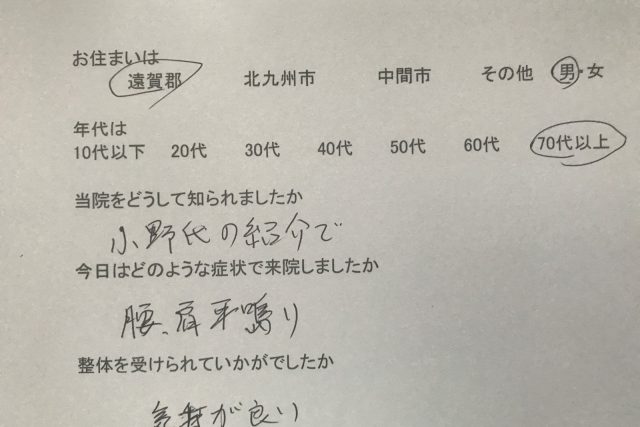 お住まいは
遠賀郡 北九州市 中間市 その他 男・女
年代は
10代以下 20代 30代 40代 50代 60代 70代以上
当院をどうして知られましたか
小野氏の紹介で
今日はどのような症状で来院しましたか
腰、肩耳鳴り
整体を受けられていかがでしたか
気持が良い